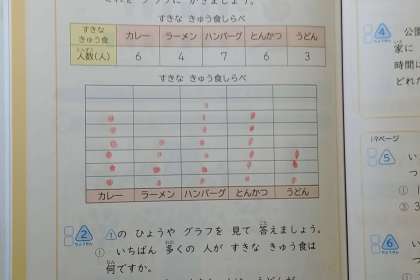 すきな きゅう食しらべ
すきな きゅう食 カレー ラーメン ハンバーグ とんかつ うどん
人数(人) 6 4 7 6 3
すきな きゅう食しらべ
カレー ラーメン ハンバーグ とんかつ うどん
2 1の ひょうや グラフを 見て 答えましょう。
① いちばん 多くの 人が すきな きゅう食は
何ですか。
4 公園
家に
時間に
どれた
17ページ
5 い
つ
①
③
6 い
①